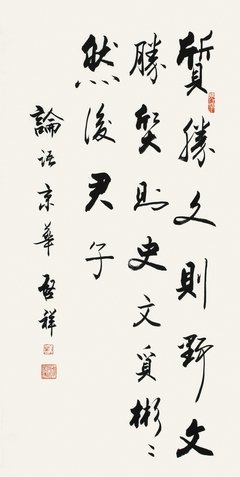 質勝文則野文
勝質則史文質彬〻
然後君子
論語京華啓祥